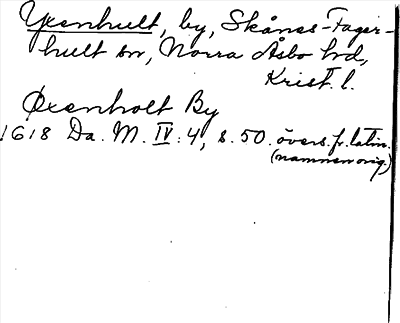 Yxenhult, by, Skånes-Fager-
hult sn, Norra Åsbo hd,
Krist. l.
Øxenholt By
1618 Da. M. IV: 4, s. 50. övers. fr. latin.
(namnen orig.)